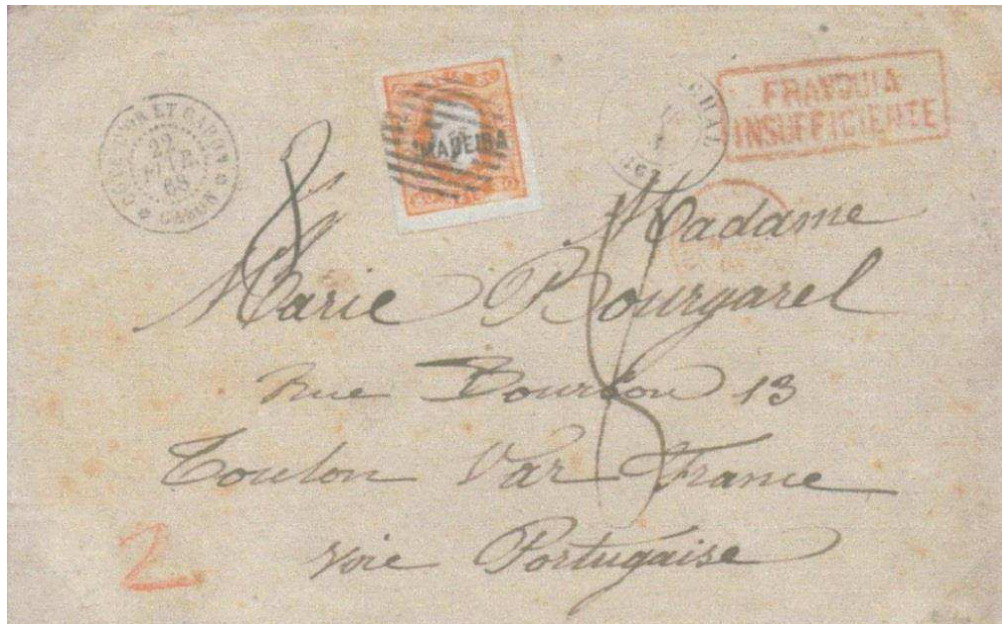 ET GABON
22
68
GABON
MADEIRA
FRANQUIA
INSUFFICIENTE
8
Madame
Marie Bourgarel
Rue Bourbon 13
Toulon Var France
voie Portugaise
2